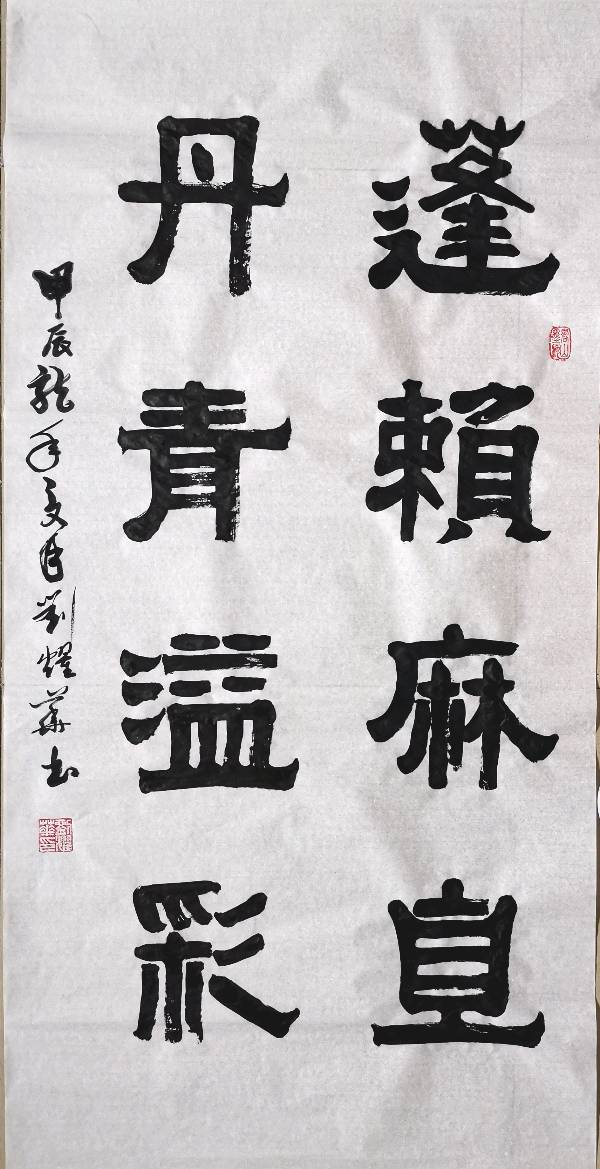 蓬賴麻直
丹青溢彩
甲辰龍年夏月劉耀華書
劉耀華印